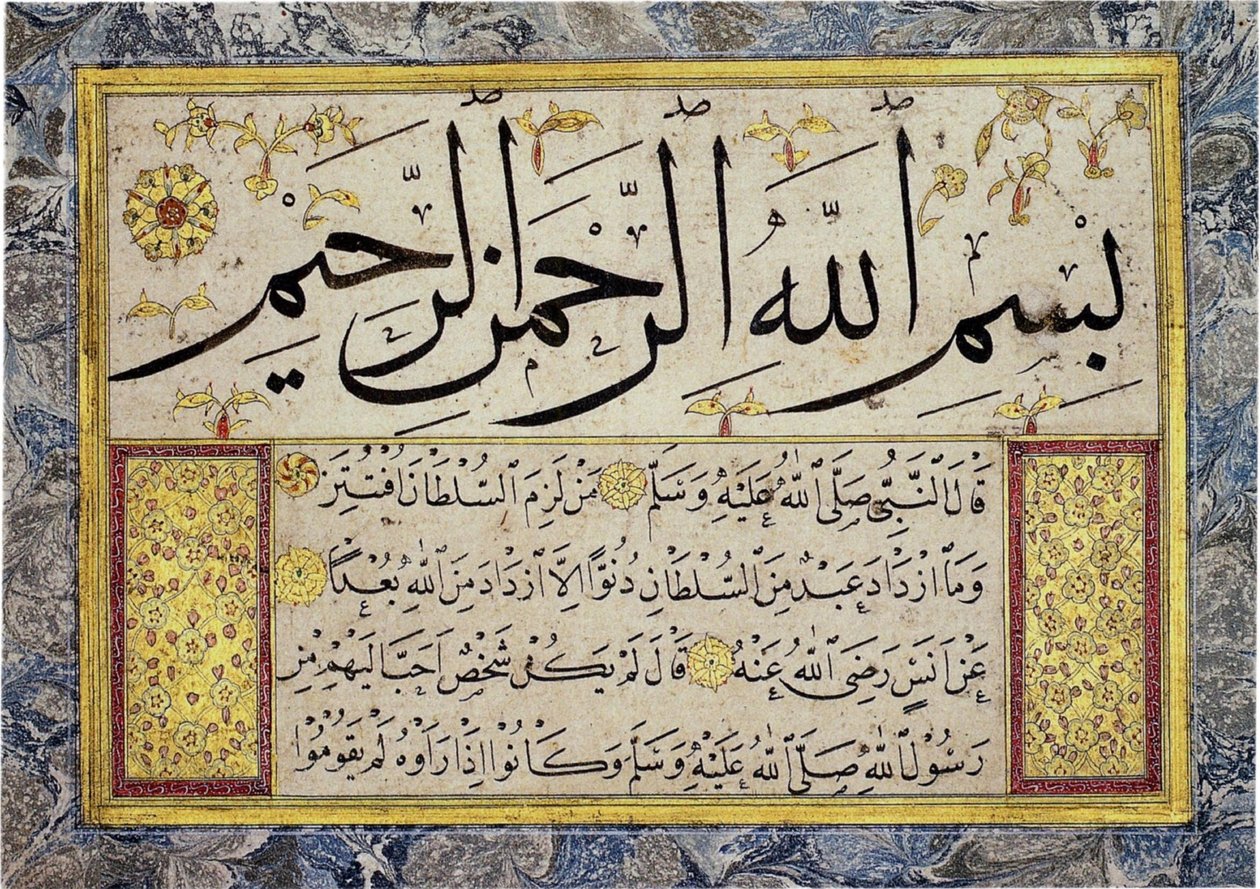 بِسْمِ ٱللّٰهِ ٱلرَّحْمٰنِ ٱلرَّحِيْمِ
قَالَ ٱلنَّبِيُّ صَلَّى ٱللّٰهُ عَلَيْهِ وَسَلَّمَ مَنْ لَزِمَ ٱلسُّلْطَانَ افْتُتِنَ
وَمَا ازْدَادَ عَبْدٌ مِنَ ٱلسُّلْطَانِ دُنُوًّا اِلَّا ازْدَادَ مِنَ ٱللّٰهِ بُعْدًا
عَنْ اَنَسٍ رَضِيَ ٱللّٰهُ عَنْهُ قَالَ لَمْ يَكُنْ شَخْصٌ اَحَبَّ اِلَيْهِمْ مِنْ
رَسُولِ ٱللّٰهِ صَلَّى ٱللّٰهُ عَلَيْهِ وَسَلَّمَ وَكَانُوا اِذَا رَاَوْهُ لَمْ يَقُومُوا